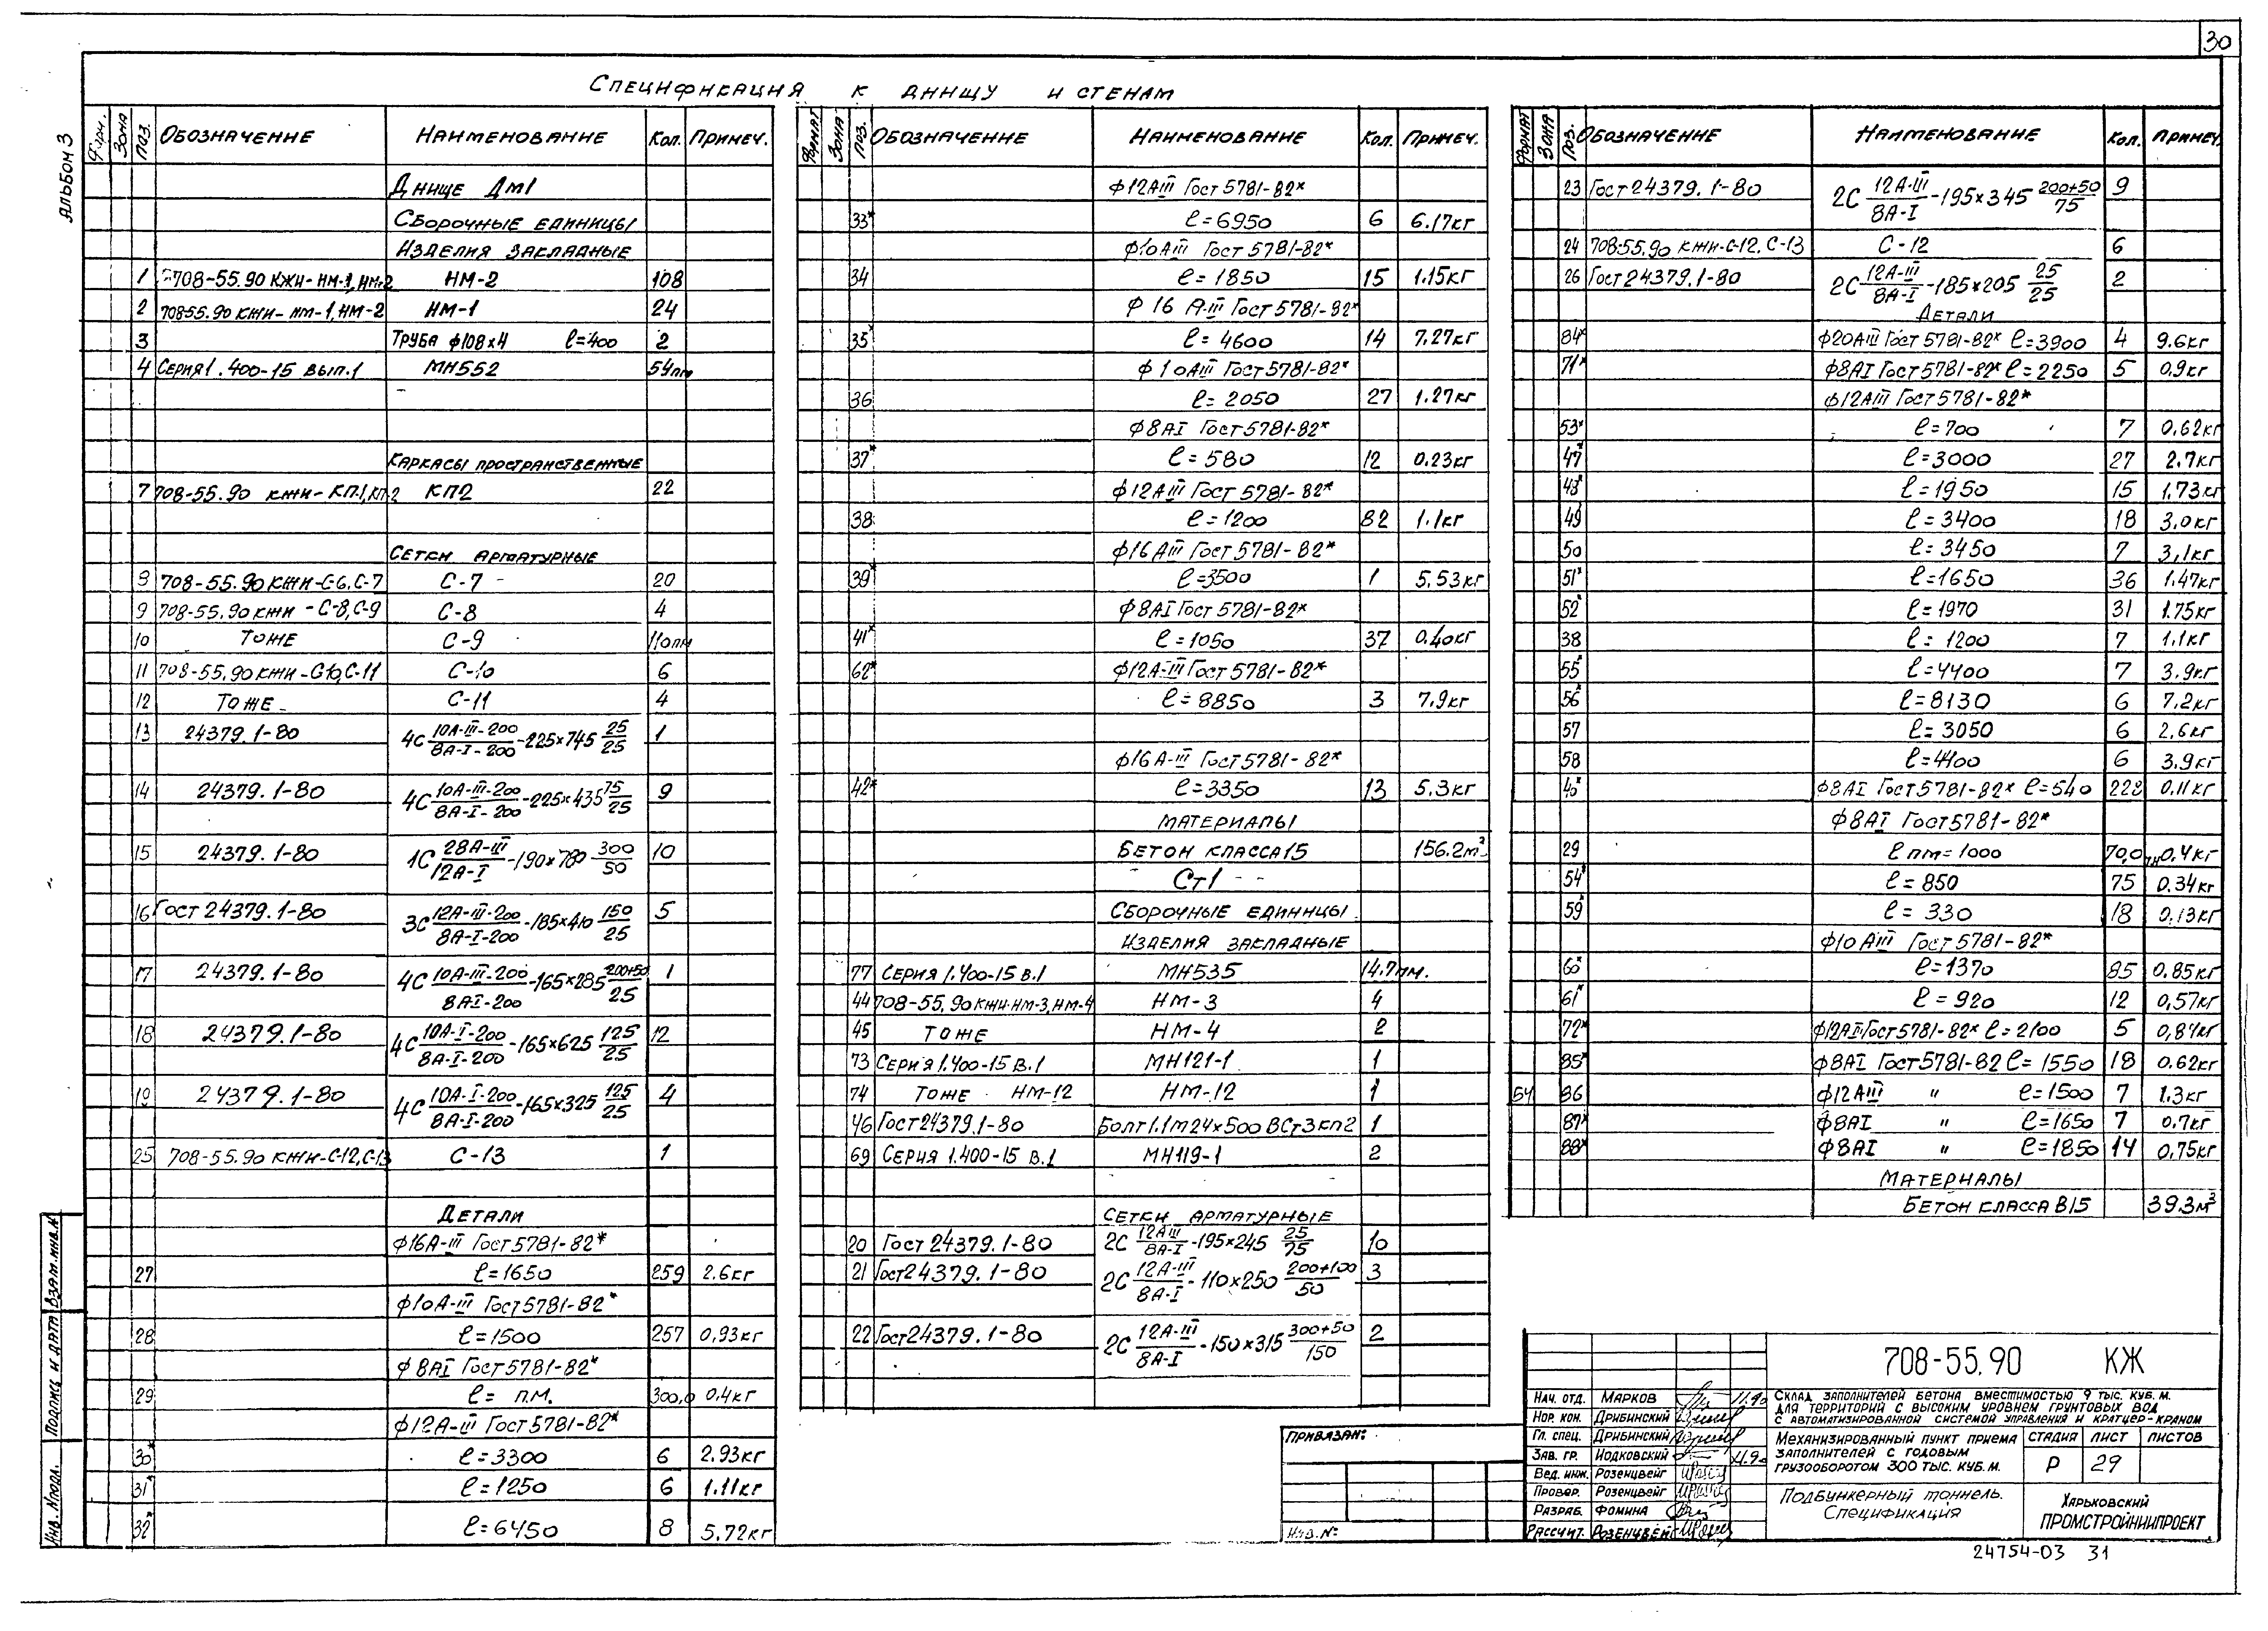 30
Альбом 3
Спецификация к днищу и стенам
Зона Поз. Обозначение Наименование Кол. Примеч.
Днище Дм1
Сборочные единицы
Изделия закладные
1 708-55.90 КЖИ-НМ-1, НМ-2 НМ-2 108
2 708-55.90 КЖИ-НМ-1, НМ-2 НМ-1 24
3 Труба ф108×4 ℓ=400 2
4 Серия 1.400-15 вып.1 МН552 54пм
Каркасы пространственные
7 708-55.90 КЖИ-КП1, КП2 КП2 22
Сетки арматурные
8 708-55.90 КЖИ-С-6, С-7 С-7 20
9 708-55.90 КЖИ-С-8, С-9 С-8 4
10 Тоже С-9 110пм
11 708-55.90 КЖИ-С10, С-11 С-10 6
12 Тоже С-11 4
13 24379.1-80 4С 10А-III-200/8А-I-200 -225×745 25/25 1
14 24379.1-80 4С 10А-III-200/8А-I-200 -225×435 75/25 9
15 24379.1-80 1С 28А-III/12А-I -190×780 300/50 10
16 Гост 24379.1-80 3С 12А-III-200/8А-I-200 -185×410 150/25 5
17 24379.1-80 4С 10А-III-200/8АI-200 -165×285 200+50/25 1
18 24379.1-80 4С 10А-I-200/8А-I-200 -165×625 125/25 12
19 24379.1-80 4С 10А-I-200/8А-I-200 -165×325 125/25 4
25 708-55.90 КЖИ-С-12, С-13 С-13 1
Детали
ф16А-III Гост 5781-82*
27 ℓ=1650 259 2.6кг
ф10А-III Гост 5781-82*
28 ℓ=1500 257 0,93кг
ф8АI Гост 5781-82*
29 ℓ= п.м. 300,0 0,4кг
ф12А-III Гост 5781-82*
30* ℓ=3300 6 2.93кг
31* ℓ=1250 6 1.11кг
32* ℓ=6450 8 5,72кг
Формат Зона Поз. Обозначение Наименование Кол. Примеч.
ф12АIII Гост 5781-82*
33* ℓ=6950 6 6.17кг
ф10АIII Гост 5781-82*
34 ℓ=1850 15 1.15кг
ф16 А-III Гост 5781-82*
35* ℓ=4600 14 7.27кг
ф10АIII Гост 5781-82*
36 ℓ=2050 27 1.27кг
ф8АI Гост 5781-82*
37* ℓ=580 12 0.23кг
ф12АIII Гост 5781-82*
38 ℓ=1200 82 1.1кг
ф16АIII Гост 5781-82*
39* ℓ=3500 1 5,53кг
ф8АI Гост 5781-82*
41* ℓ=1050 37 0.40кг
62* ф12А-III Гост 5781-82*
ℓ=8850 3 7,9кг
ф16А-III Гост 5781-82*
42* ℓ=3350 13 5.3кг
Материалы
Бетон класса 15 156.2м³
Ст1
Сборочные единицы
Изделия закладные
77 Серия 1.400-15 в.1 МН535 14.7пм.
44 708-55,90 КЖИ-НМ-3, НМ-4 НМ-3 4
45 Тоже НМ-4 2
73 Серия 1.400-15 в.1 МН121-1 1
74 Тоже НМ-12 НМ-12 1
46 Гост 24379.1-80 Болт 1.1М24×500 ВСт3кп2 1
69 Серия 1.400-15 в.1 МН119-1 2
Сетки арматурные
20 Гост 24379.1-80 2С 12АIII/8А-I -195×245 25/75 10
21 Гост 24379.1-80 2С 12А-III/8А-I -110×250 200+100/50 3
22 Гост 24379.1-80 2С 12А-III/8А-I -150×315 300+50/150 2
Формат Зона Поз. Обозначение Наименование Кол. Примеч.
23 Гост 24379.1-80 2С 12А-III/8А-I -195×345 200+50/75 9
24 708-55.90 КЖИ-С-12, С-13 С-12 6
26 Гост 24379.1-80 2С 12А-III/8А-I -185×205 25/25 2
Детали
84* ф20АIII Гост 5781-82* ℓ=3900 4 9.6кг
71* ф8АI Гост 5781-82* ℓ=2250 5 0,9кг
ф12АIII Гост 5781-82*
53* ℓ=700 7 0,62кг
47* ℓ=3000 27 2.7кг
48* ℓ=1950 15 1.73кг
49* ℓ=3400 18 3,0кг
50 ℓ=3450 7 3,1кг
51* ℓ=1650 36 1.47кг
52* ℓ=1970 31 1.75кг
38 ℓ=1200 7 1.1кг
55* ℓ=4400 7 3.9кг
56* ℓ=8130 6 7.2кг
57 ℓ=3050 6 2,6кг
58 ℓ=4400 6 3.9кг
40* ф8АI Гост 5781-82* ℓ=540 228 0.11кг
ф8АI Гост 5781-82*
29 ℓ пм=1000 70,0пм 0,4кг
54* ℓ=850 75 0.34кг
59* ℓ=330 18 0,13кг
ф10АIII Гост 5781-82*
60* ℓ=1370 85 0.85кг
61* ℓ=920 12 0,57кг
72* ф12АIII Гост 5781-82* ℓ=2100 5 0,84кг
85* ф8АI Гост 5781-82 ℓ=1550 18 0.62кг
БЧ 86 ф12АIII " ℓ=1500 7 1.3кг
87* ф8АI " ℓ=1650 7 0.7кг
88* ф8АI " ℓ=1850 14 0,75кг
Материалы
Бетон класса В15 39.3м³
Взам.инв.№
Подпись и дата
Инв.№подл.
Привязан:
Инв.№
708-55.90 КЖ
Нач. отд. Марков 11.90
Нор. кон. Дрибинский
Гл. спец. Дрибинский
Зав. гр. Иодковский
Вед. инж. Розенцвейг
Провер. Розенцвейг
Разраб. Фомина
Рассчит. Розенцвейг
Склад заполнителей бетона вместимостью 9 тыс. куб. м.
для территорий с высоким уровнем грунтовых вод
с автоматизированной системой управления и кратцер-краном
Механизированный пункт приема
заполнителей с годовым
грузооборотом 300 тыс. куб. м.
Стадия Лист Листов
Р 29
Подбункерный тоннель.
Спецификация
Харьковский
Промстройниипроект
24754-03 31